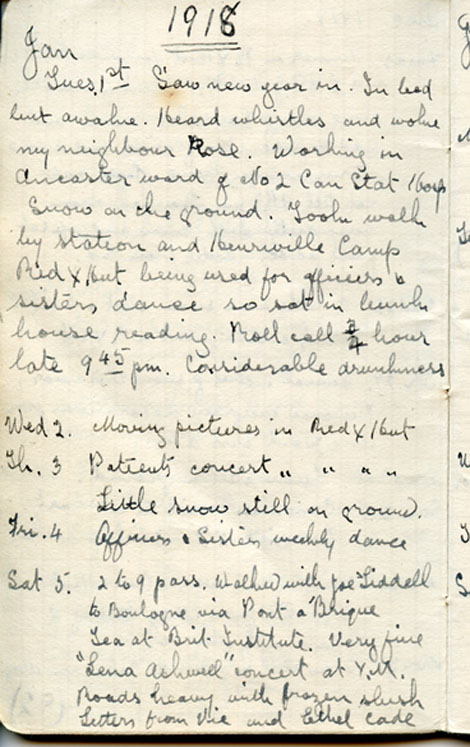 1918
Jan
Tues. 1st Saw new year in. In bed
but awake. Heard whistles and woke
my neighbour Rose. Working in
Ancaster ward of No 2 Can Stat Hosp
Snow on the ground. Took walk
by station and Henriville Camp
Red X Hut being used for officers &
sisters dance so sat in bunk
house reading. Roll call 3/4 hour
late 9 45 pm. Considerable drunkness
Wed 2. Moving pictures in Red X Hut
Th. 3 Patients concert " " " "
Little snow still on ground.
Fri. 4 Officers & Sisters weekly dance
Sat 5. 2 to 9 pass. Walked with Joe Liddell
to Boulogne via Pont a Brique
Tea at Brit Institute. Very fine
"Lena Ashwell" concert at Y.M.
Roads heavy with frozen slush
Letters from Vic and Ethel Cade